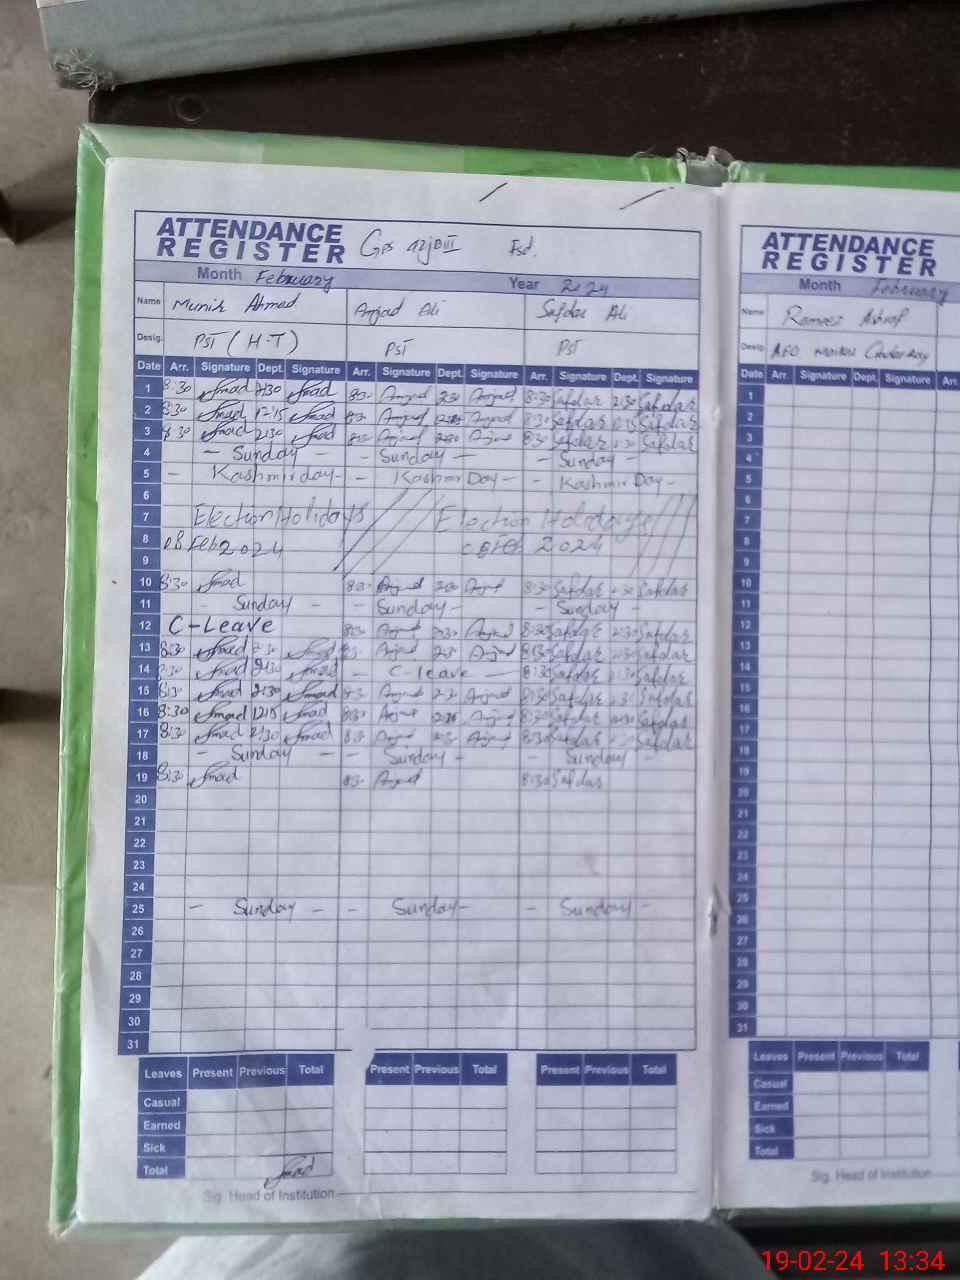 ATTENDANCE REGISTER GPS Fsd.
Month February Year 2024
Name Munir Ahmad Amjad Ali Safdar Ali
Desig. PST (H-T) PST PST
Date Arr. Signature Dept. Signature Arr. Signature Dept. Signature Arr. Signature Dept. Signature
1 8:30 2:30 8:30 Amjad 2:30 Amjad 8:30 Safdar 2:30 Safdar
2 8:30 12:15 8:30 Amjad Amjad 8:30 Safdar Safdar
3 8:30 2:30 Amjad Amjad 8:30 Safdar Safdar
4 - Sunday - - Sunday - - Sunday -
5 - Kashmir day - - Kashmir Day - - Kashmir Day -
6
7 Election Holidays Election Holidays
8 08 Feb 2024 Feb 2024
9
10 8:30 Amjad Amjad 8:30 Safdar Safdar
11 - Sunday - - Sunday - - Sunday -
12 C-Leave Amjad 2:30 Amjad 8:30 Safdar 2:30 Safdar
13 8:30 2:30 Amjad Amjad 8:30 Safdar Safdar
14 2:30 - C-leave - 8:30 Safdar Safdar
15 8:30 2:30 Amjad Amjad 8:30 Safdar Safdar
16 8:30 12:15 Amjad Amjad 8:30 Safdar Safdar
17 8:30 2:30 Amjad Amjad 8:30 Safdar Safdar
18 - Sunday - - Sunday - - Sunday -
19 8:30 Amjad 8:30 Safdar
20
21
22
23
24
25 - Sunday - - Sunday - - Sunday -
26
27
28
29
30
31
Leaves Present Previous Total Present Previous Total Present Previous Total
Casual
Earned
Sick
Total
Sig. Head of Institution
ATTENDANCE REGISTER
Month February
Name Rameez Ashraf
Desig. AEO
Date Arr. Signature Dept. Signature Arr.
1
2
3
4
5
6
7
8
9
10
11
12
13
14
15
16
17
18
19
20
21
22
23
24
25
26
27
28
29
30
31
Leaves Present Previous Total
Casual
Earned
Sick
Total
Sig. Head of Institution
19-02-24 13:34